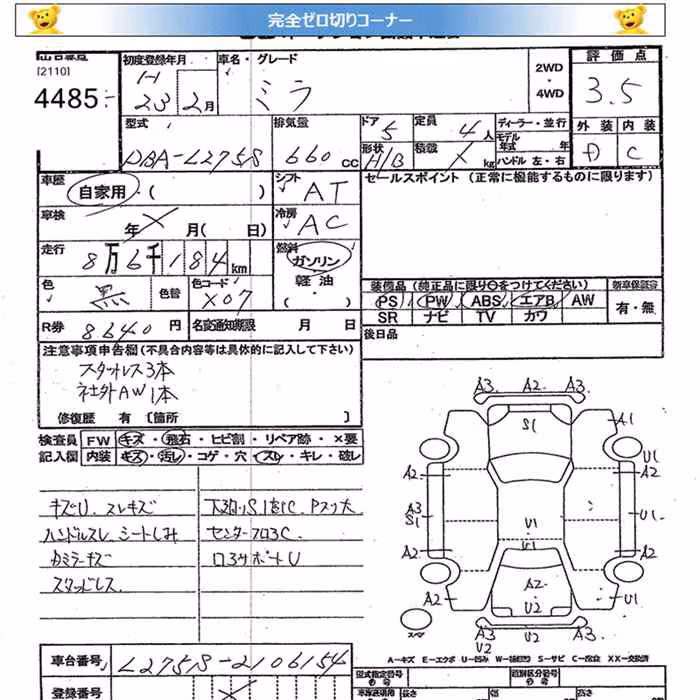 完全ゼロ切りコーナー
[2110]
4485
初度登録年月
H
23 2月
車名・グレード
ミラ
2WD
・
4WD
評価点
3.5
外装 内装
D C
型式
DBA-L275S
排気量
660 cc
ドア
5
形状
H/B
定員
4人
積載
X kg
ディーラー・並行
モデル
年式 年
ハンドル 左・右
車歴
自家用・( )
シフト
AT
セールスポイント (正常に機能するものに限ります)
車検
年 X 月( 日)
冷房
AC
走行
8万6千184km
燃料
ガソリン
・
軽油
・
( )
色
黒
色替
色コード
X07
装備品 (純正品に限り○をつけてください)
新車保証書
PS PW ABS エアB AW
SR ナビ TV カワ
有・無
R券 8640円
名変通知期限 月 日
後日品
注意事項申告欄(不具合内容等は具体的に記入して下さい)
スタットレス3本
社外AW1本
修復歴 有 〔箇所 〕
検査員 FW キズ・飛石・ヒビ割・リペア跡・×要
記入欄 内装 キズ・汚レ・コゲ・穴・スレ・キレ・破レ
キズU. スレキズ
ハンドルスレ シートしみ
センターフロ3C.
スタッドレス.
ロ3サポートU
A3 A2 A3
S1
A1
U1
A2 A2
A3
S1
U1
U1
U1
A2 A2
A2
A2
U1
U2
A3
U2
U2
A3
スペア
A-キズ E-エクボ U-凹み W-補修跡 S-サビ C-腐食 XX-交換済
車台番号 L275S-2106154
登録番号
型式指定番号
類別区分番号
長さ
幅
高さ